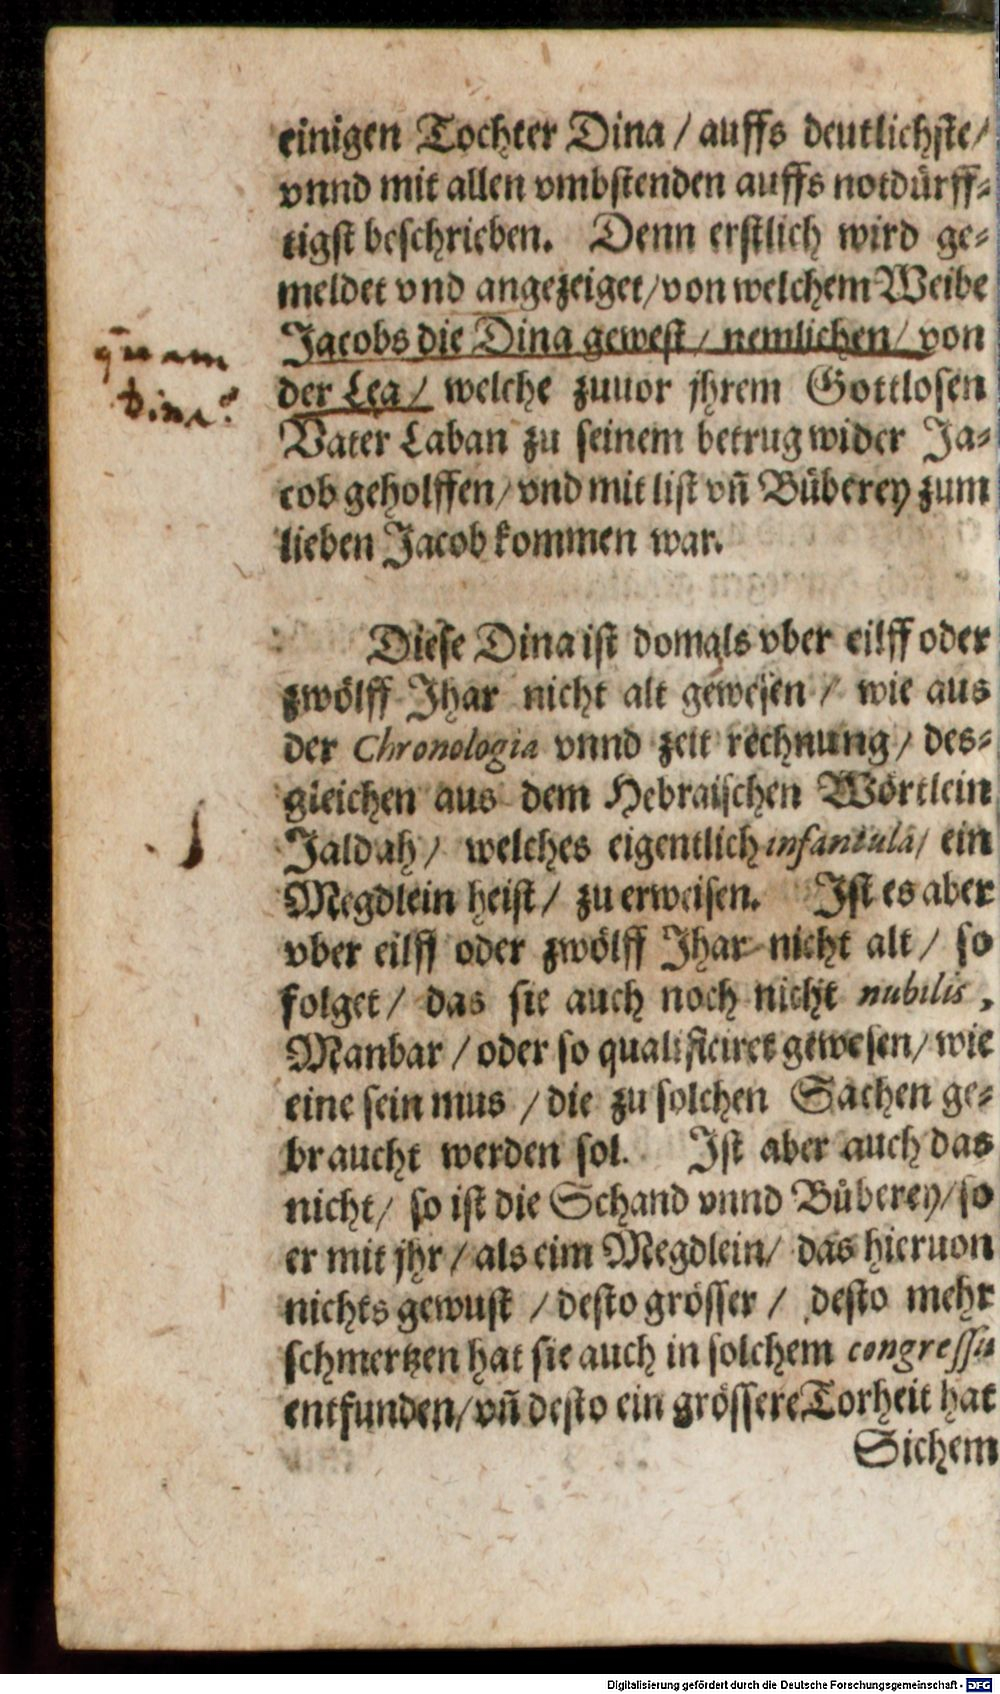 einigen Tochter Dina / auffs deutlichste /
vnnd mit allen vmbstenden auffs notdürff-
tigst beschrieben. Denn erstlich wird ge-
meldet vnd angezeiget / von welchem Weibe
Jacobs die Dina gewest / nemlichen / von
der Lea / welche zuuor jhrem Gottlosen
Vater Laban zu seinem betrug wider Ja-
cob geholffen / vnd mit list vn̄ Büberey zum
lieben Jacob kommen war.
Diese Dina ist domals vber eilff oder
zwölff Jhar nicht alt gewesen / wie aus
der Chronologia vnnd zeit rechnung / des-
gleichen aus dem Hebraischen Wörtlein
Jaldah / welches eigentlich infantula / ein
Megdlein heist / zu erweisen. Ist es aber
vber eilff oder zwölff Jhar nicht alt / so
folget / das sie auch noch nicht nubilis,
Manbar / oder so qualificiret gewesen / wie
eine sein mus / die zu solchen Sachen ge-
braucht werden sol. Ist aber auch das
nicht / so ist die Schand vnnd Büberey / so
er mit jhr / als eim Megdlein / das hieruon
nichts gewust / desto grösser / desto mehr
schmertzen hat sie auch in solchem congressu
entfunden / vn̄ desto ein grössere Torheit hat
Sichem
Digitalisierung gefördert durch die Deutsche Forschungsgemeinschaft - DFG